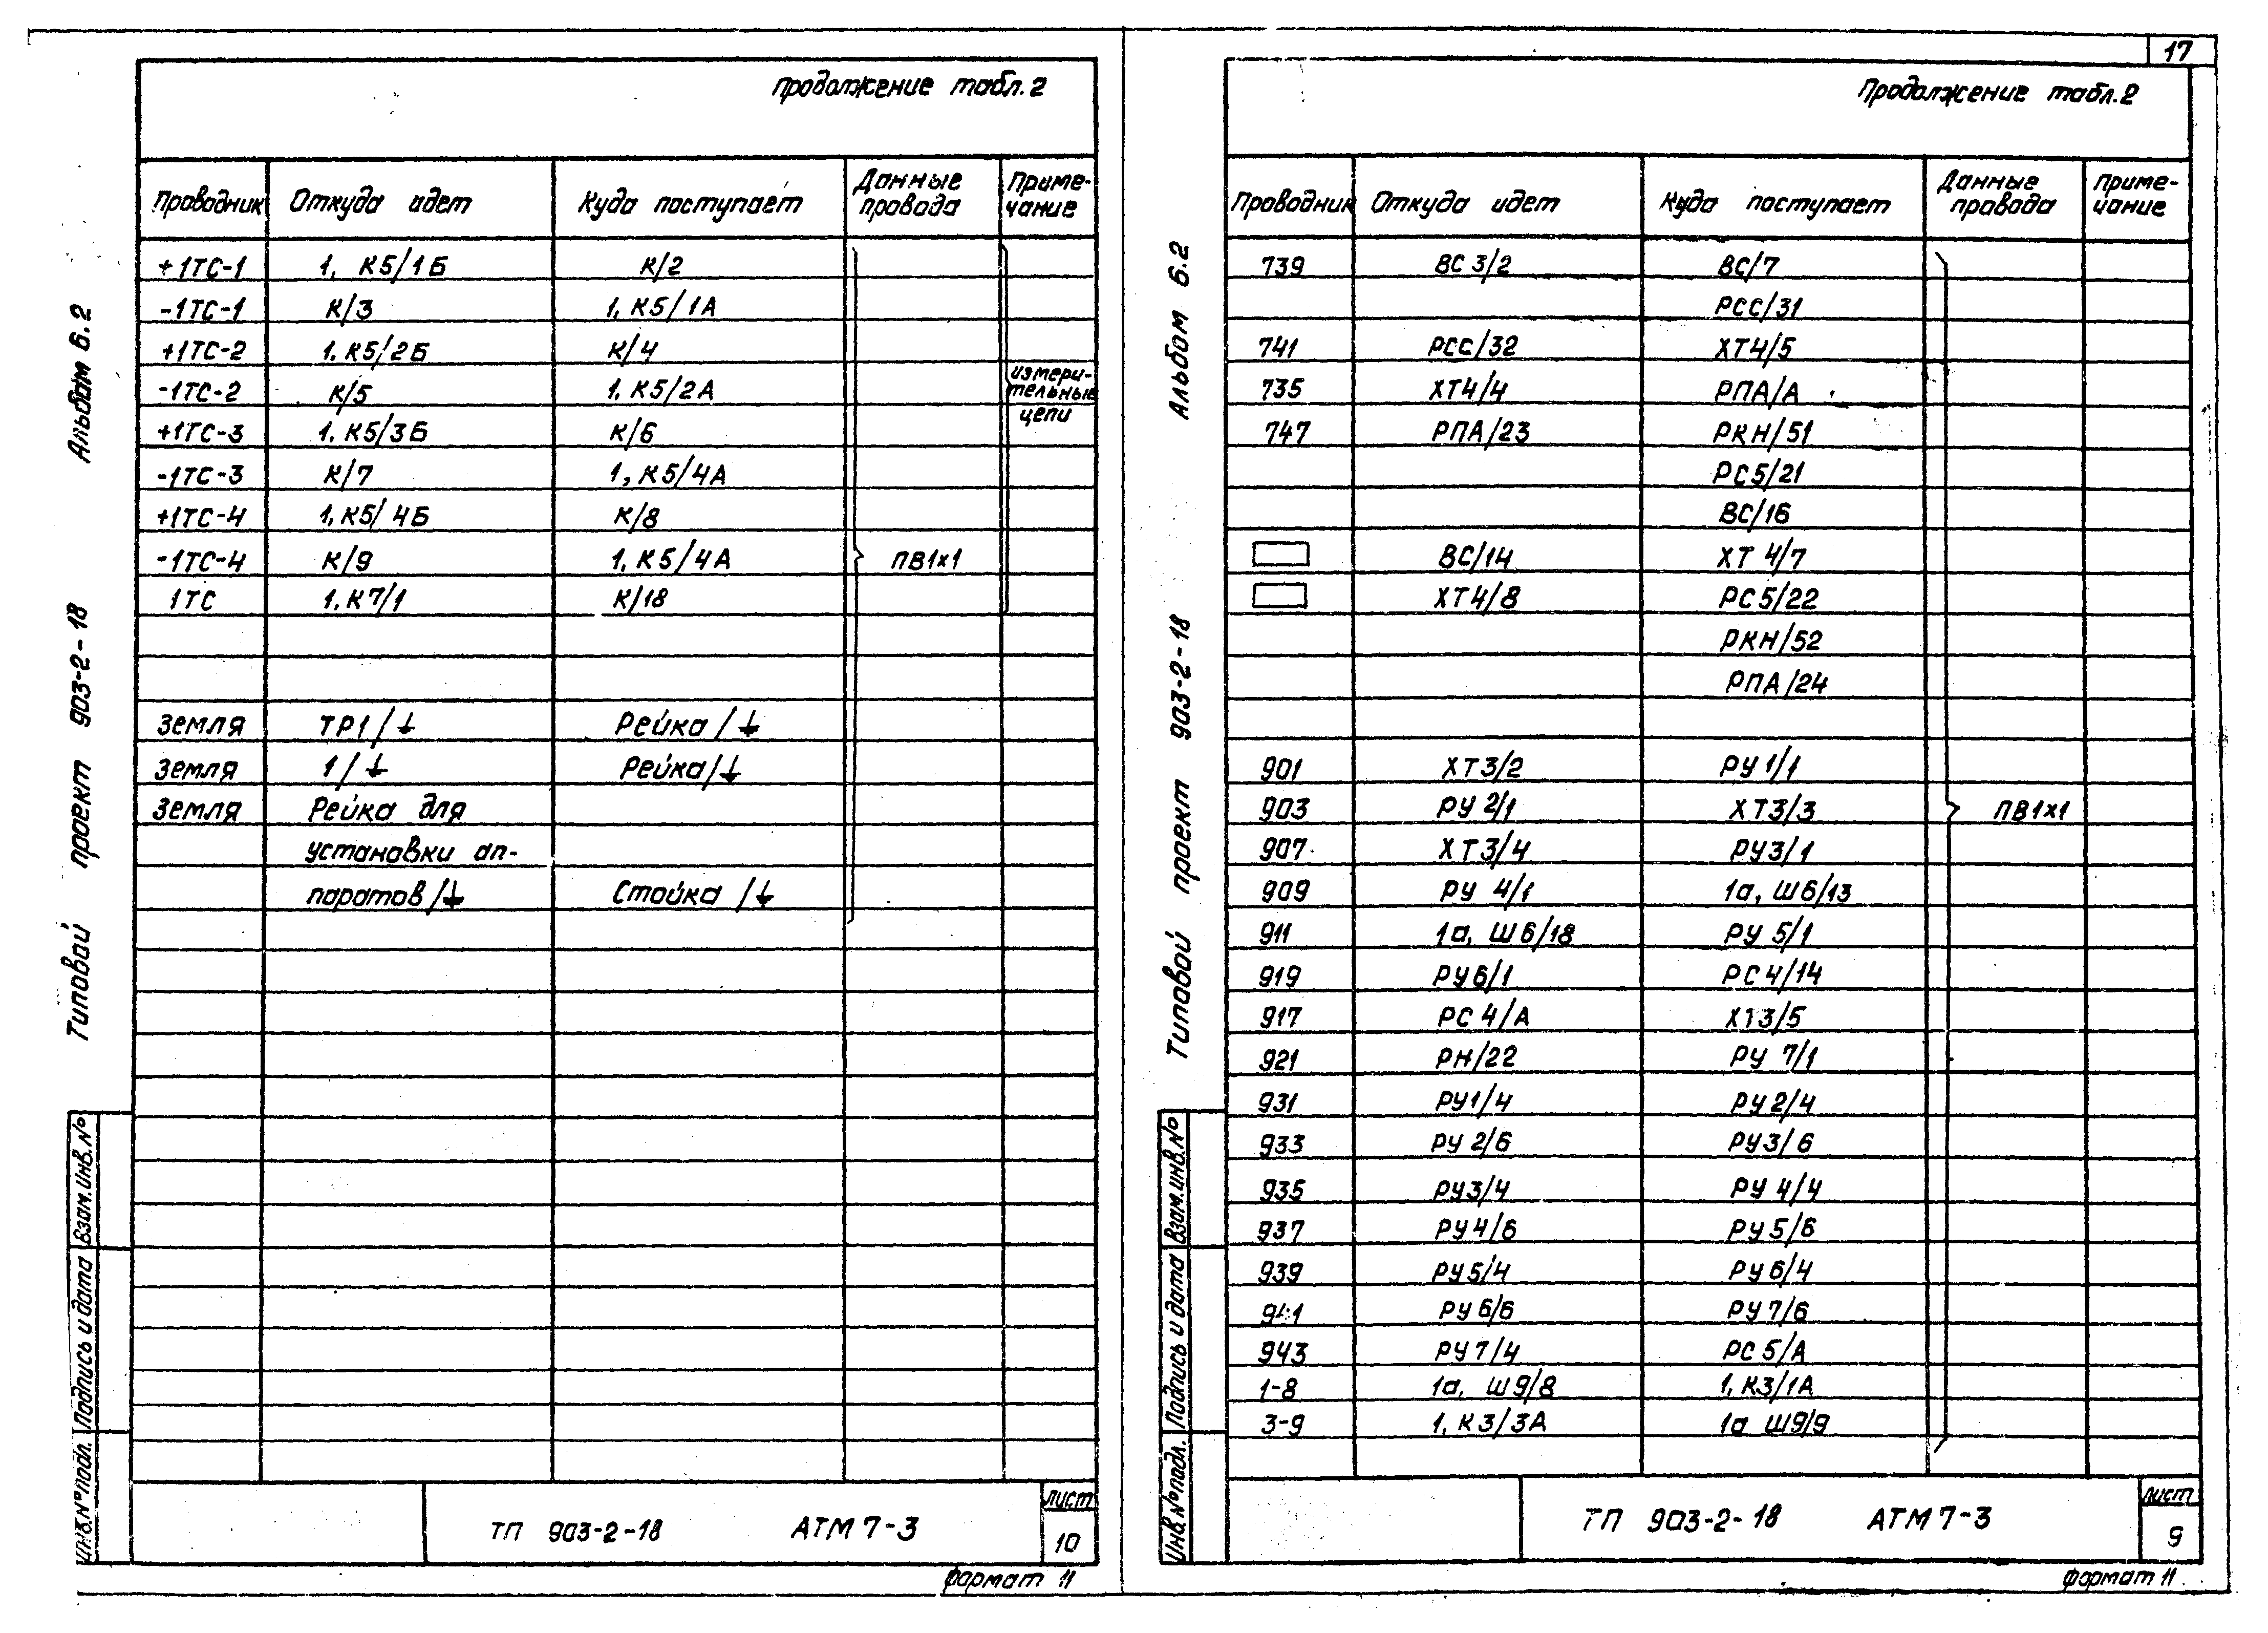 17
Продолжение табл.2
Проводник Откуда идет Куда поступает Данные провода Приме-чание
+1ТС-1 1, К5/1Б К/2
-1ТС-1 К/3 1, К5/1А
+1ТС-2 1, К5/2Б К/4
-1ТС-2 К/5 1, К5/2А
измери-
тельные
цепи
+1ТС-3 1, К5/3Б К/6
-1ТС-3 К/7 1, К5/4А
+1ТС-4 1, К5/4Б К/8
-1ТС-4 К/9 1, К5/4А ПВ1х1
1ТС 1, К7/1 К/18
Земля ТР1/⏚ Рейка/⏚
Земля 1/⏚ Рейка/⏚
Земля Рейка для
установки ап-
паратов/⏚ Стойка/⏚
ТП 903-2-18 АТМ7-3
Лист
10
Формат 11
Альбом 6.2
Типовой проект 903-2-18
Взам.инв.№
Подпись и дата
Инв.№подл.
Продолжение табл.2
Проводник Откуда идет Куда поступает Данные провода Приме-чание
739 ВС3/2 ВС/7
РСС/31
741 РСС/32 ХТ4/5
735 ХТ4/4 РПА/А
747 РПА/23 РКН/51
РС5/21
ВС/16
ВС/14 ХТ4/7
ХТ4/8 РС5/22
РКН/52
РПА/24
901 ХТ3/2 РУ1/1
903 РУ2/1 ХТ3/3 ПВ1х1
907 ХТ3/4 РУ3/1
909 РУ4/1 1а, Ш6/13
911 1а, Ш6/18 РУ5/1
919 РУ6/1 РС4/14
917 РС4/А ХТ3/5
921 РН/22 РУ7/1
931 РУ1/4 РУ2/4
933 РУ2/6 РУ3/6
935 РУ3/4 РУ4/4
937 РУ4/6 РУ5/6
939 РУ5/4 РУ6/4
941 РУ6/6 РУ7/6
943 РУ7/4 РС5/А
1-8 1а, Ш9/8 1, К3/1А
3-9 1, К3/3А 1а Ш9/9
ТП 903-2-18 АТМ7-3
Лист
9
Формат 11
Альбом 6.2
Типовой проект 903-2-18
Взам.инв.№
Подпись и дата
Инв.№подл.